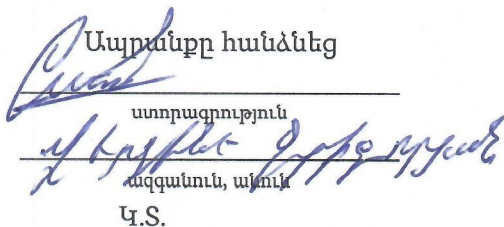 Ապրանքը հանձնեց
ստորագրություն
Գրիգորյան
ազգանուն, անուն
Կ.Տ.